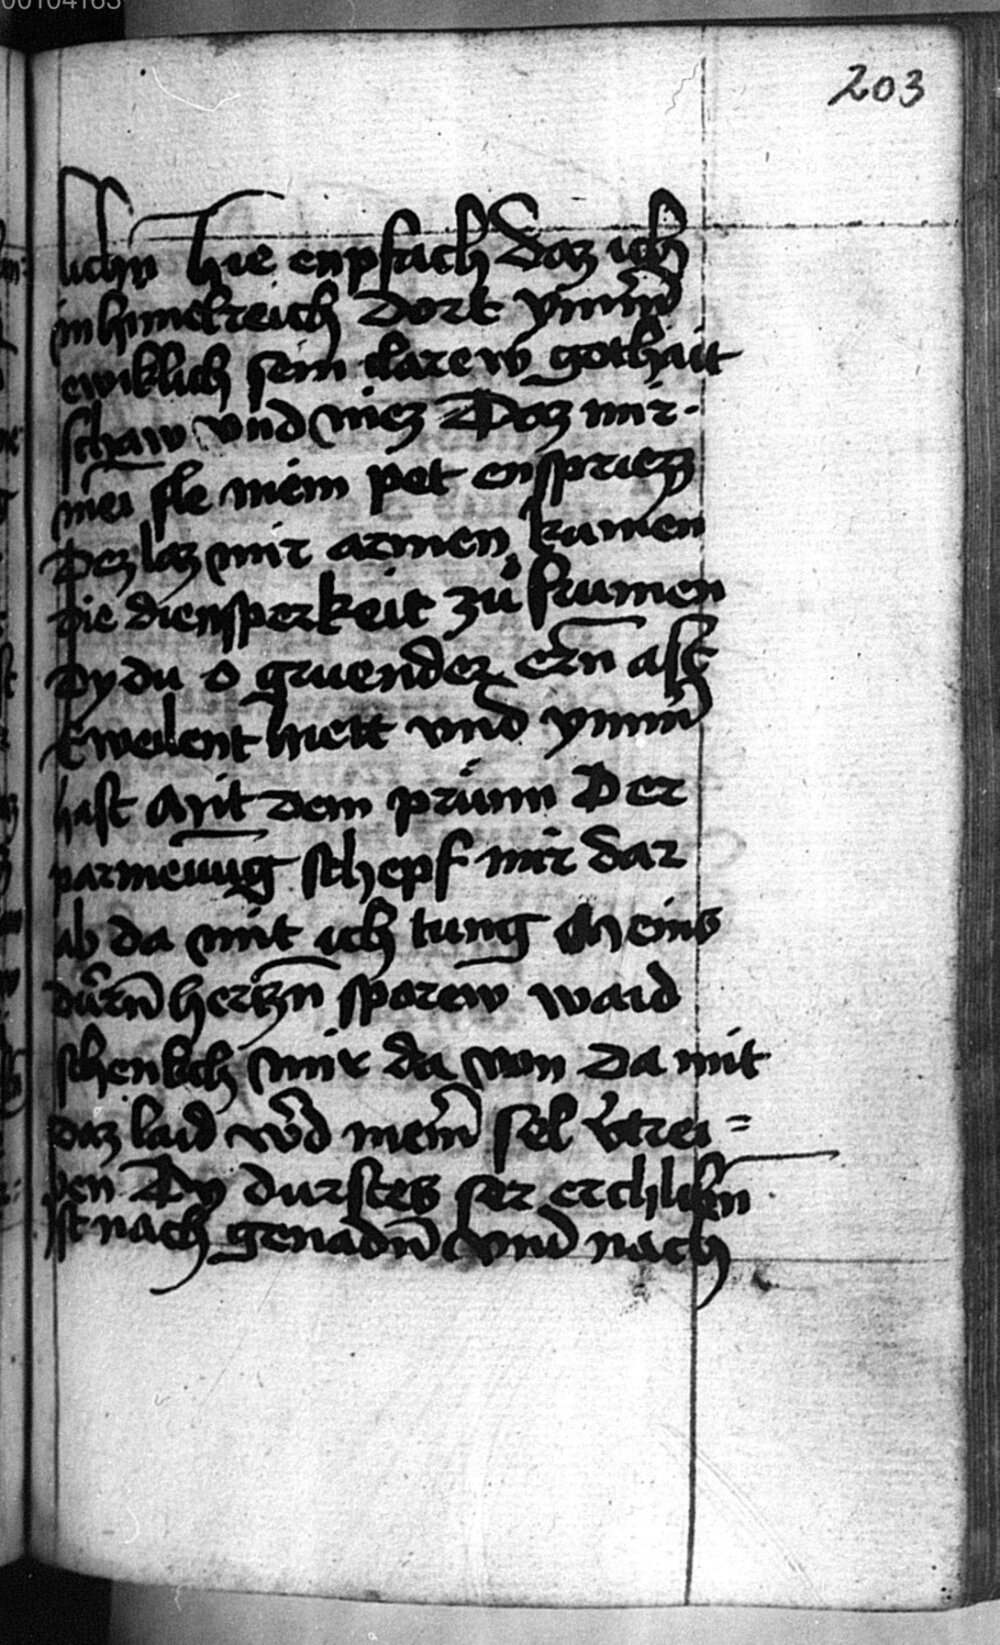 00104163
203
lichn̄ hie enpfach Daz ich
in himelreich Dort ymm̄d
ewiklich sein clarew gothait
schaw vnd niez Daz mir
mei sle mein pet enspriez
Dez laz mir armen kumen
die diensperkeit zů frumen
Dy du o gruender ern̄ ast
Ewelent hiett vnd ymm̄
hast Mit dem prünn Der
parmeūug schepf mir dar
ab da mit ich tung Meins
důrn̄ hertzn̄ sporew waid
schenkch mir da von Da mit
daz laid v̄d meīn sel v̄trei=
pen Dy durstes ser erchlichn̄
ist nach genadn̄ vnd nach